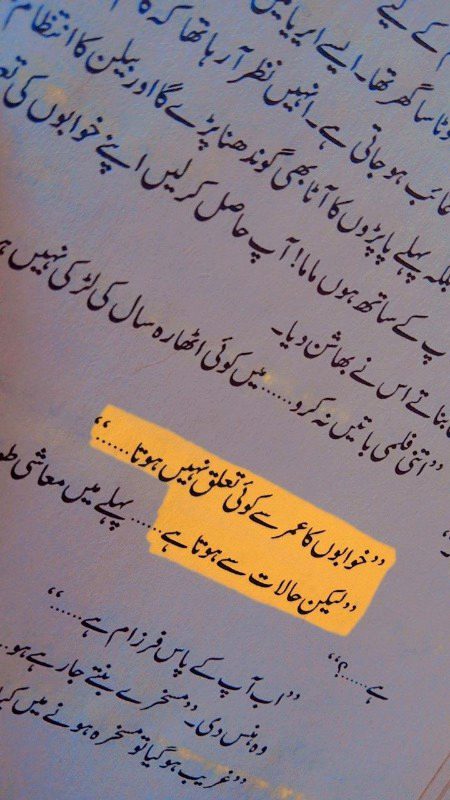 م کے لیے
وٹا سا گھر تھا۔ ایسے ایریا میں
غائب ہو جاتی ہے۔ انہیں نظر آ رہا تھا کہ
بلکہ پہلے پاپڑوں کا آٹا بھی گوندھنا پڑے گا اور بیلن کا انتظام
پ کے ساتھ ہوں ماما! آپ حاصل کر لیں اپنے خوابوں کی
بناتے اس نے بھاشن دیا۔
”اتنی فلمی باتیں نہ کرو...... میں کوئی اٹھارہ سال کی لڑکی نہیں
”خوابوں کا عمر سے کوئی تعلق نہیں ہوتا......“
”لیکن حالات سے ہوتا ہے...... پہلے میں معاشی
ہے.....؟“
”اب آپ کے پاس فرزام ہے......“
وہ ہنس دی۔ ”مسخرے بنتے جا رہے ہو..
”غریب ہو گیا تو مسخرہ ہونے میں کیا